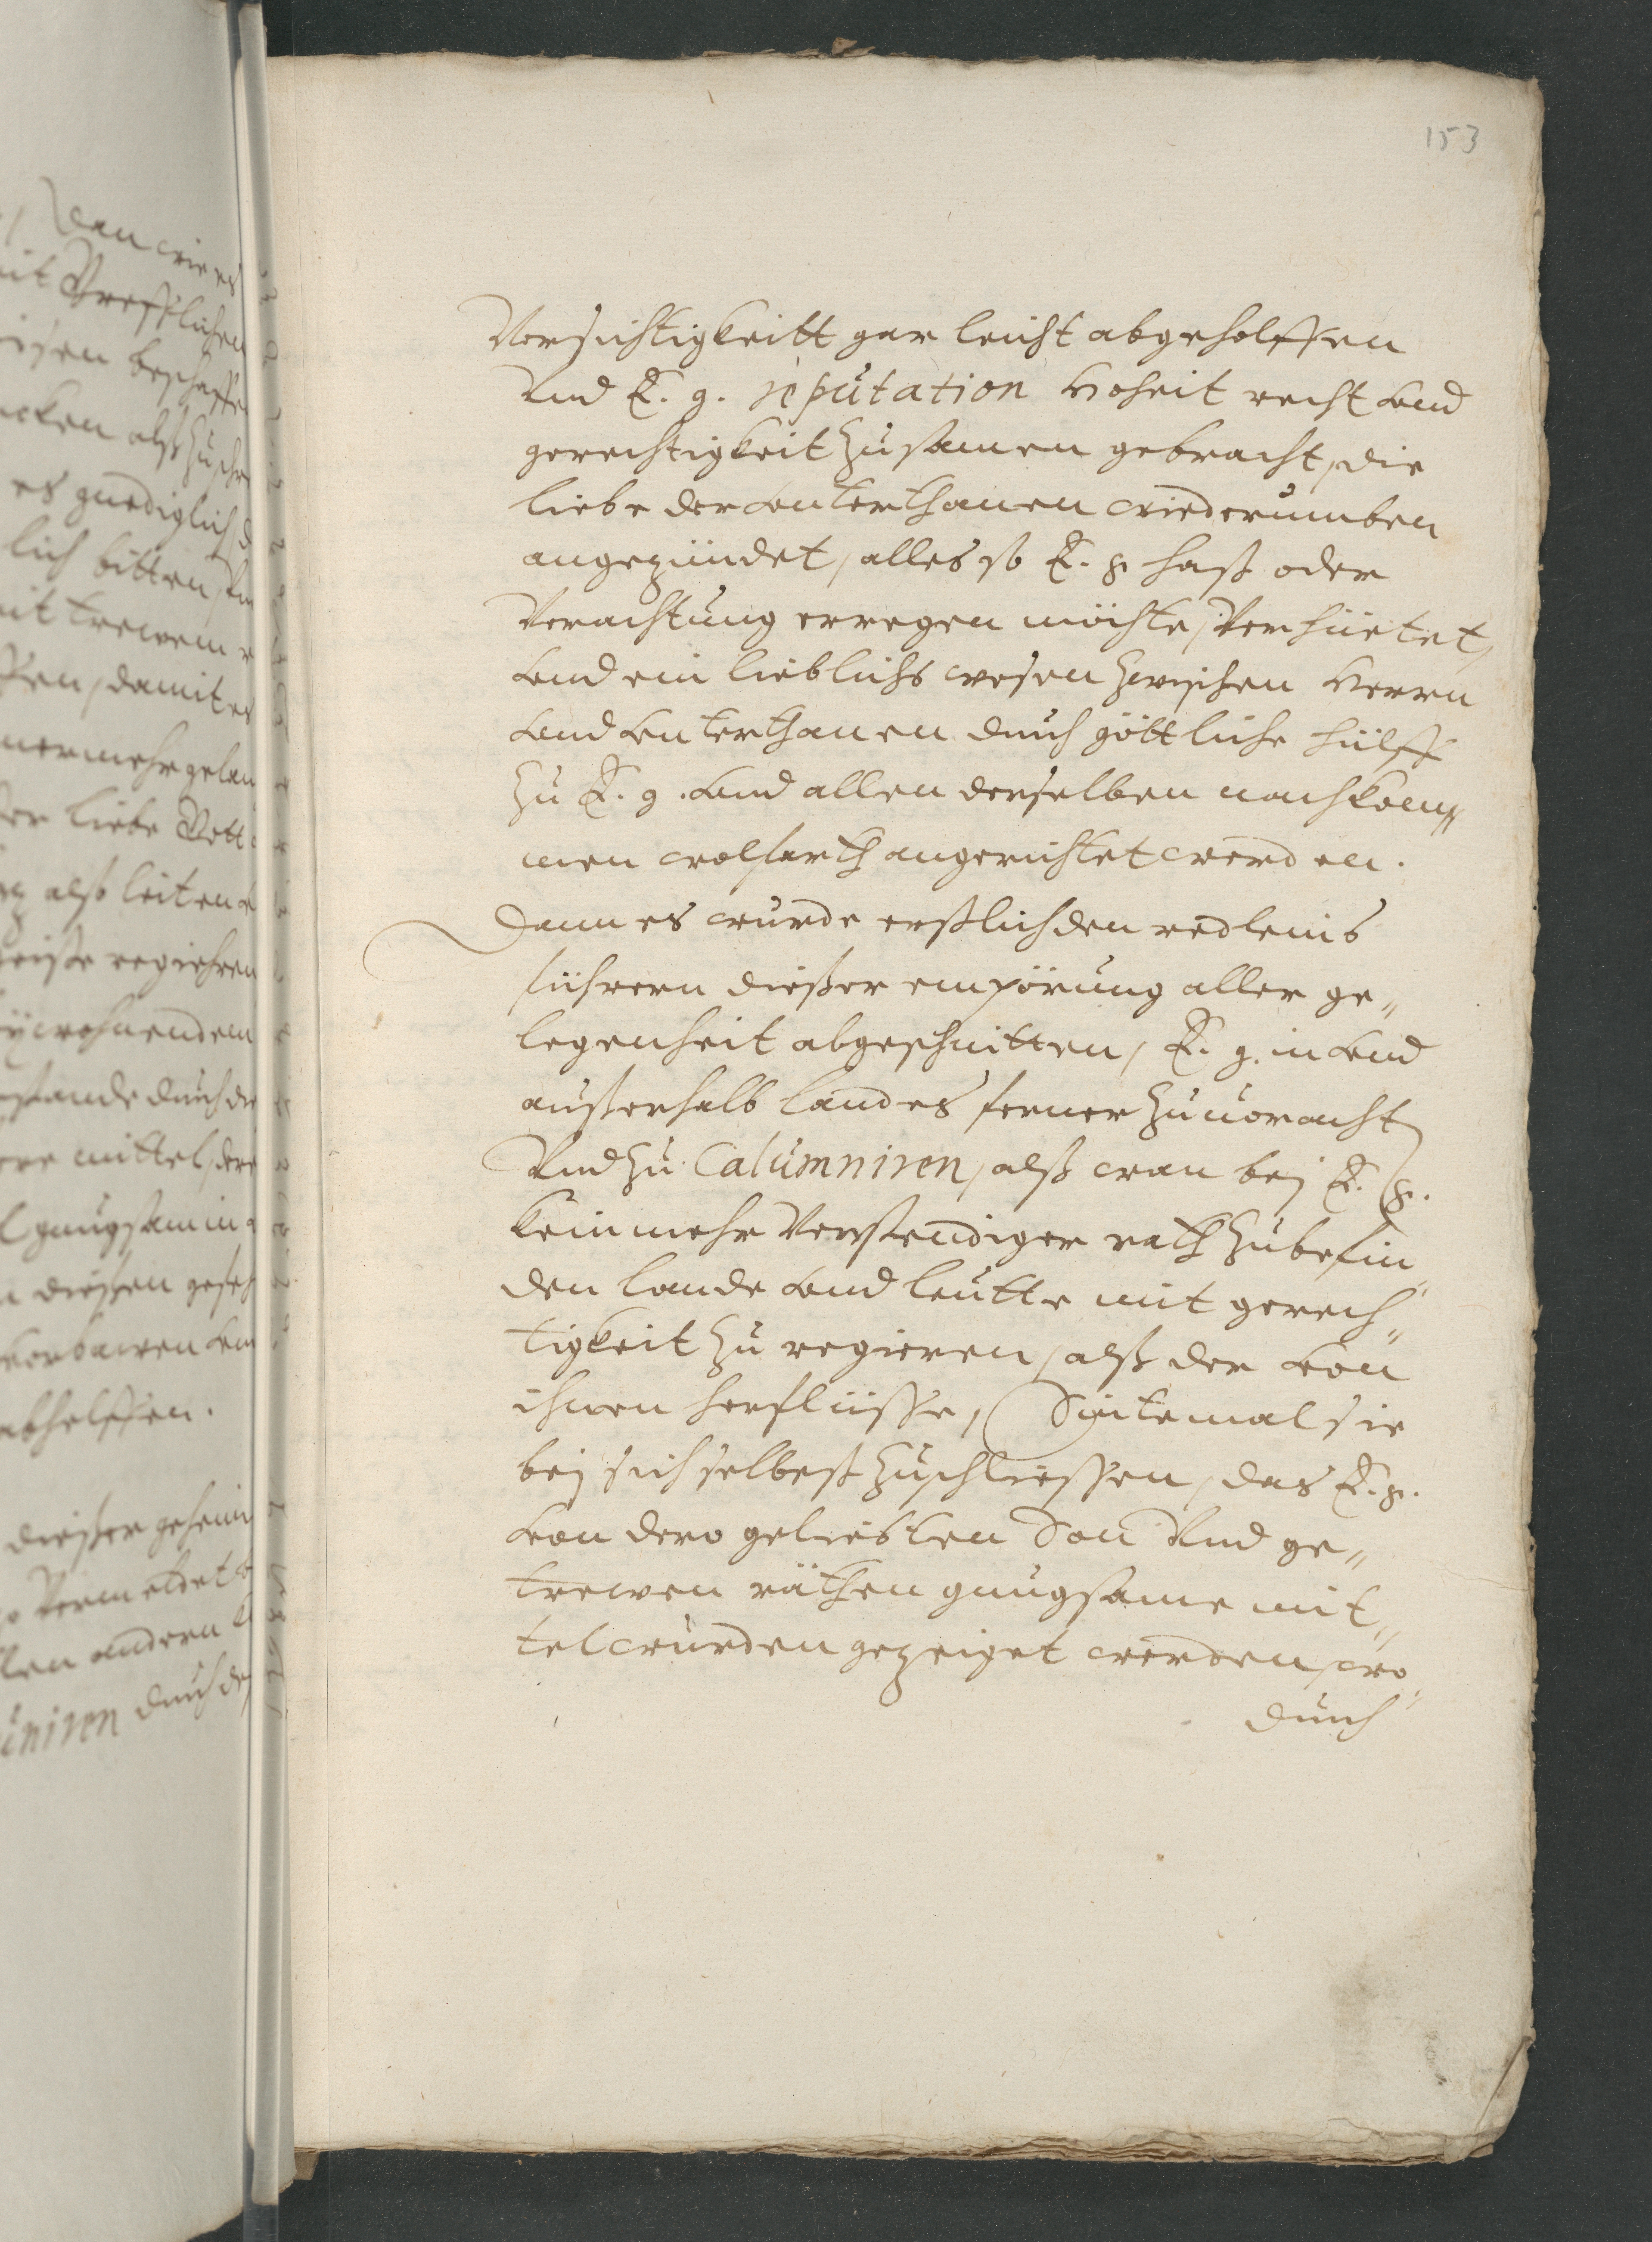 153
Vorsichtigkeitt gar leicht abgeholffen
Vnd E. g. reputation Hoheit recht vnd
gerechtigkeit zusamen gebracht, die
liebe der vnterthanen wiederumben
angezündet, alles so E. g haß oder
Verachtung erregen möchte, Verhüetet,
vnd ein lieblichs wesen zwischen Herrn
vnd vnterthanen durch göttliche hülff
zu E. g. vnd allen derselben nachkom„
men wolfarth angerichtet werden.
Dann es würde erstlich den redleins
führern dießer empörung aller ge„
legenheit abgeschnitten, E. g. in vnd
außerhalb landes ferner zuuoracht
Vnd zu Calumniren, alß wan bej E. g.
kein mehr Verstendiger rath zubefin„
den lande vnd leutte mit gerech„
tigkeit zu regieren, alß der von
ihnen herflüsse, Sintemal sie
bej sich selbest zuschliessen, das E. g.
von dero geliebten Son Vnd ge„
trewen räthen gnugsame mit„
tel würden gezeiget werden, wo„
durch